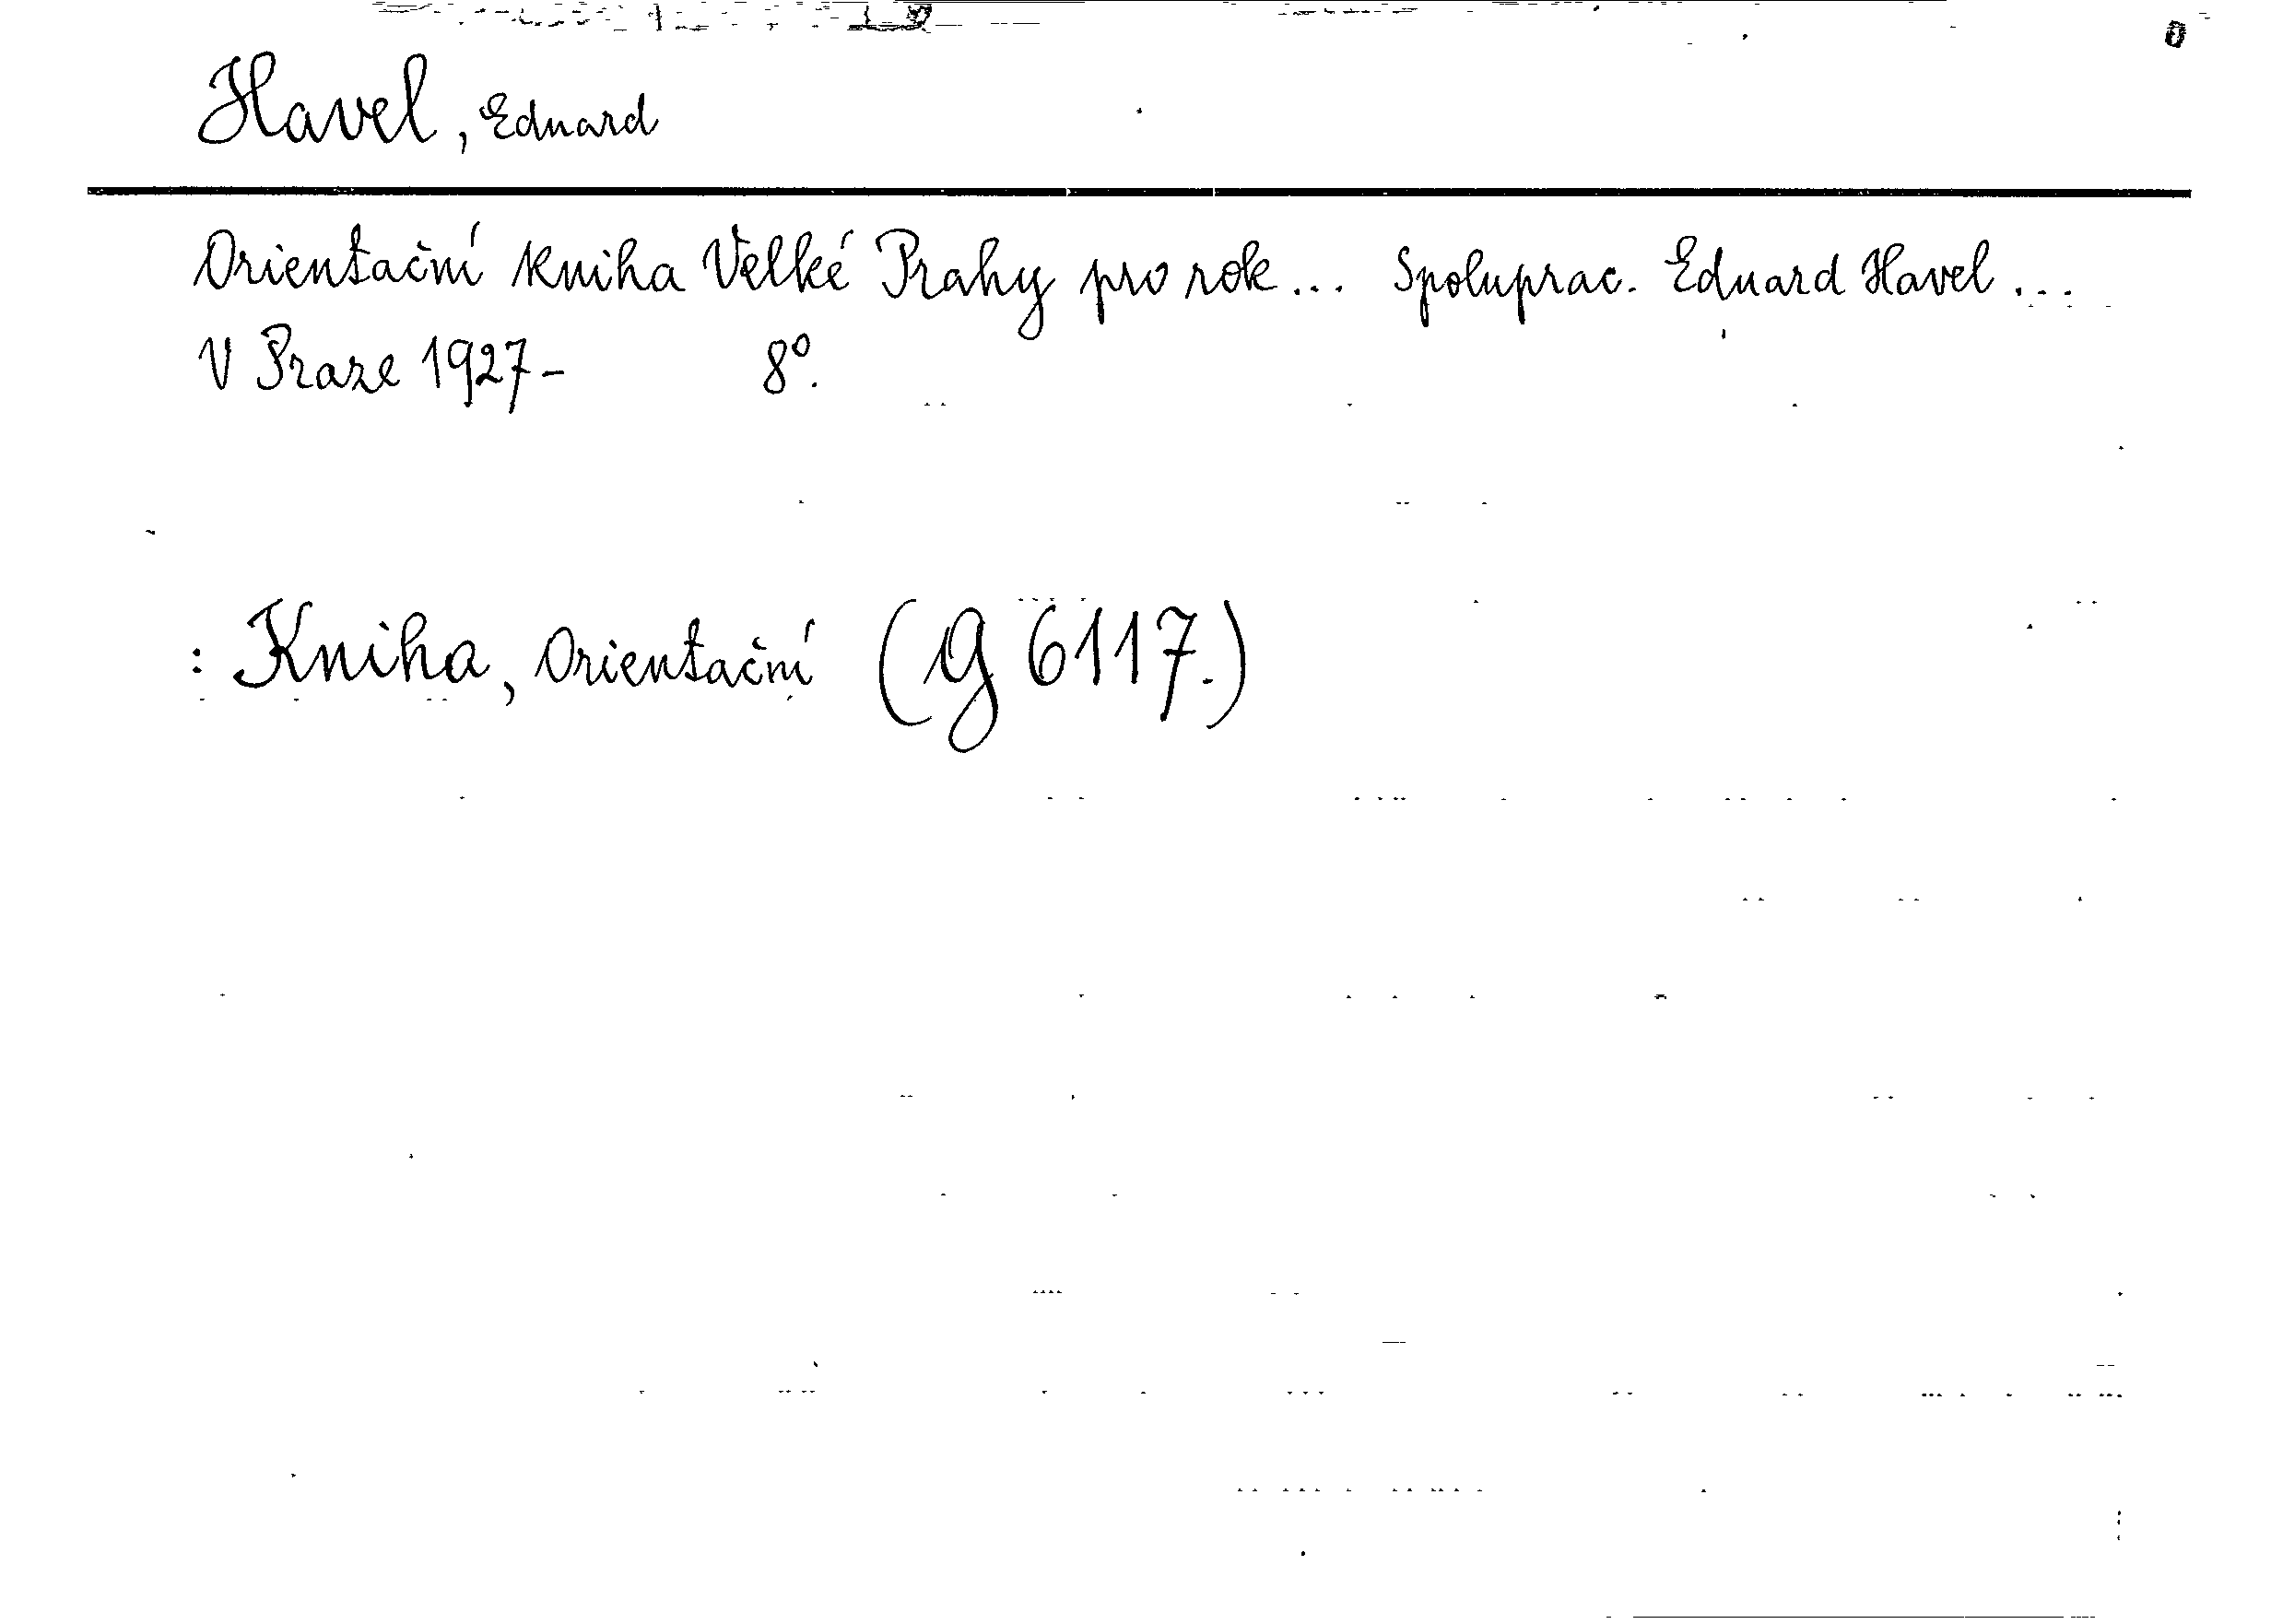 Havel, Eduard
Orientační kniha Velké Prahy pro rok... Spoluprac. Eduard Havel...
V Praze 1927- 8°.
: Kniha, Orientační (g 6117.)